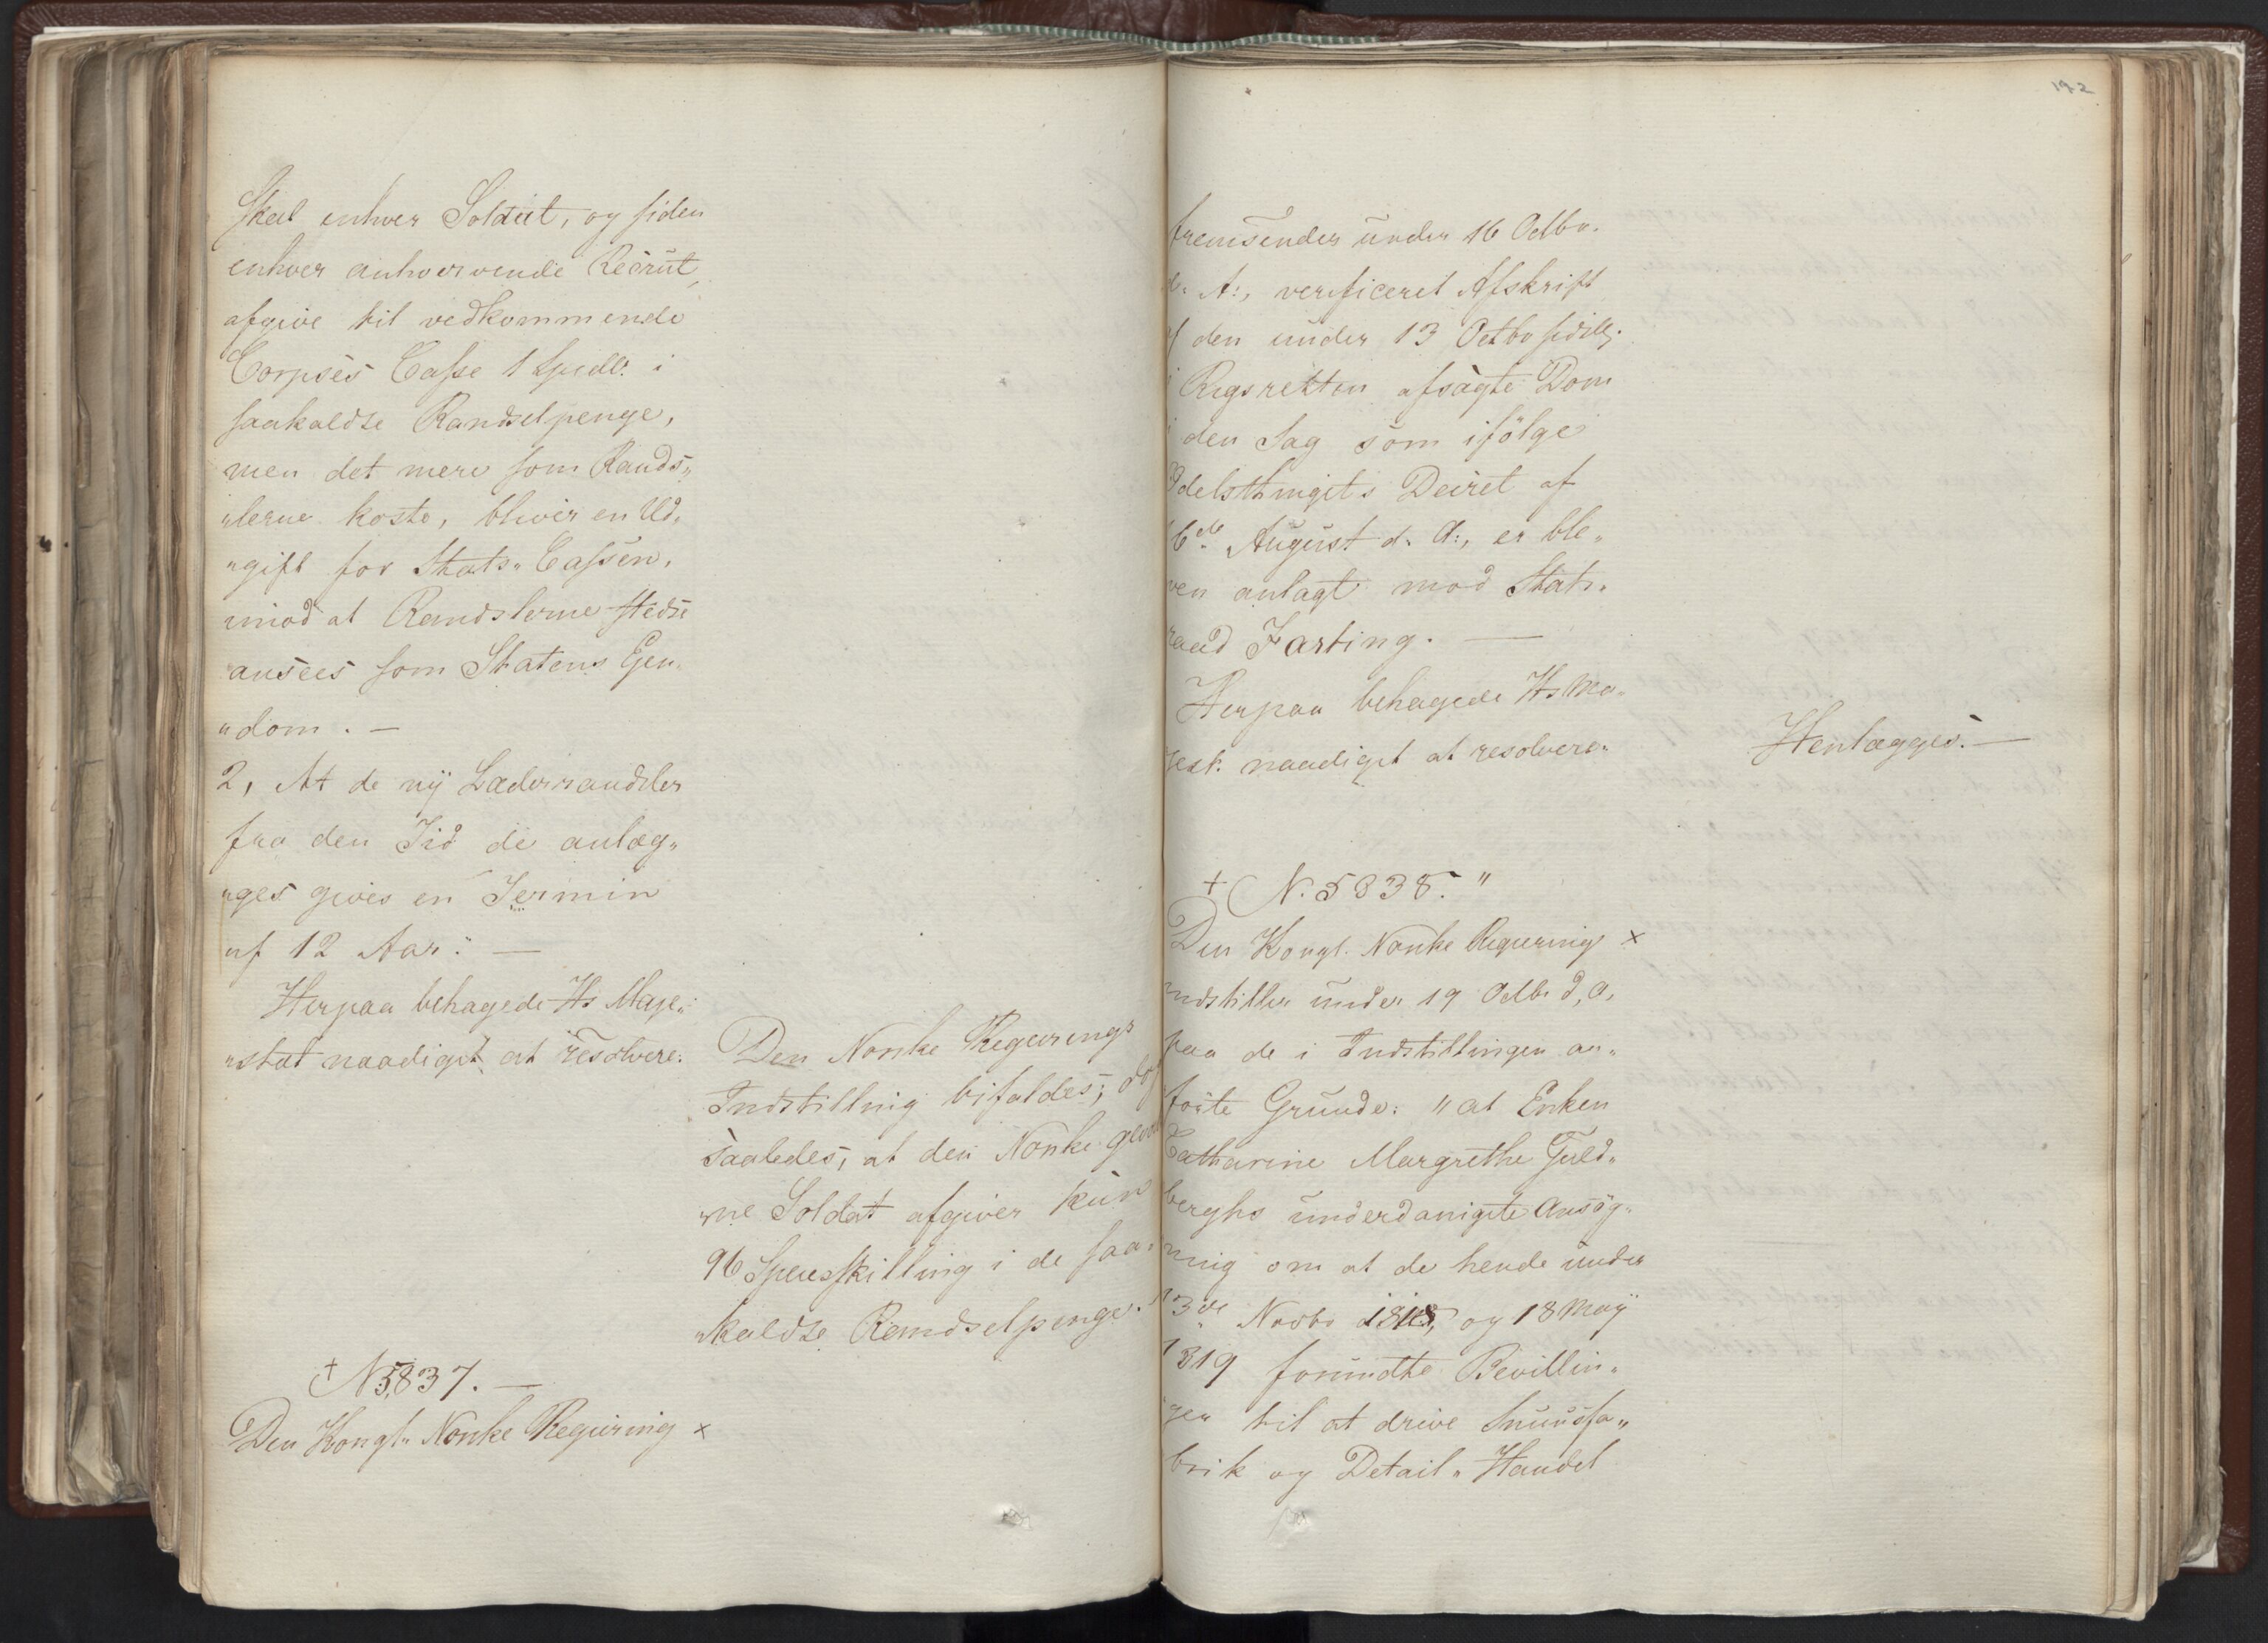 Skal enhver Soldat, og siden
enhver anhvervende Recrut,
afgive til vedkommende
Corpses Casse 1 Spedlr. i
saakaldte Randselpenge,
men det mere som Rands„
„lerne koste, bliver en Ud„
„gift for Stats„Cassen,
imod at Randslerne stedse
ansees som Statens Ejen„
„dom. —
2, At de nÿ Læderrandsler
fra den Tid de anlæg„
„ges gives en Termin
af 12 Aar: —
Herpaa behagede Hs Maje„
„stæt naadigst at resolvere:
Den Norske Regjerings
Indstilling bifaldes; dog
saaledes, at den Norske gevor
„ne Soldat afgiver kun
96 Speciesskilling i de saa„
„kaldte Randselpenge.
† N 5837. —
Den Kongl. Norske Regjering ×
192
fremsender under 16 Octbr.
d. A:, verificeret Afskrift
af den under 13 Octbr sidstl.
i Rigsretten afsagte Dom
i den Sag som ifölge
Odelsthingets Decret af
6de August d. A:, er ble„
ven anlagt mod Stats„
raad Fasting. —
Herpaa behagede Hs Ma„
jest. naadigst at resolvere„
Henlægges. —
† N. 5838. "
Den Kongl. Norske Regjering ×
indstiller under 19 Octbr d, A,
paa de i Indstillingen an„
förte Grunde: „at Enken
Catharine Margrethe Guld„
berghs underdanigste Ansög„
ning om at de hende under
13de Novbr 1818, og 18 Maÿ
1819 forundte Bevillin„
gen til at drive Snuusfa„
brik og Detail„Handel